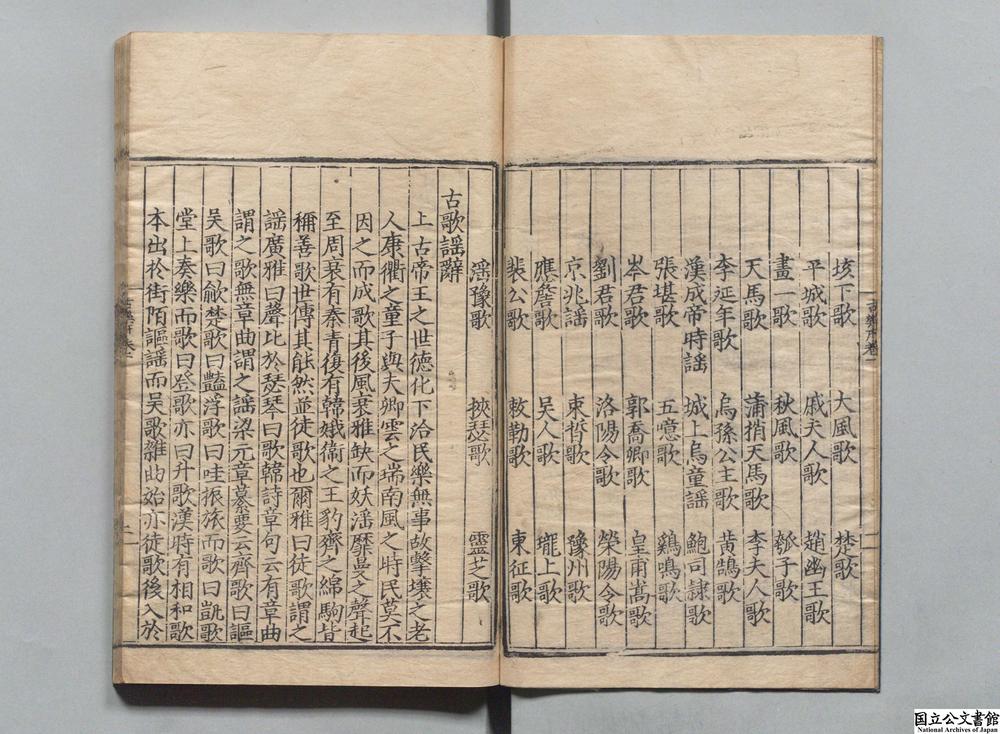 垓下歌 大風歌 楚歌
平城歌 戚夫人歌 趙幽王歌
畫一歌 秋風歌 瓠子歌
天馬歌 蒲捎天馬歌 李夫人歌
李延年歌 烏孫公主歌 黃鵠歌
漢成帝時謡 城上烏童謡 鮑司隷歌
張堪歌 五噫歌 鷄鳴歌
岑君歌 郭喬卿歌 皇甫嵩歌
劉君歌 洛陽令歌 滎陽令歌
京兆謡 束晳歌 豫州歌
應詹歌 吳人歌 隴上歌
裴公歌 敕勒歌 東征歌
滛豫歌 挾瑟歌 靈芝歌
古歌謡辭
上古帝王之世德化下洽民樂無事故擊壤之老
人康衢之童子與夫卿雲之瑞南風之時民莫不
因之而成歌其後風衰雅缺而妖滛靡曼之聲起
至周衰有秦青復有韓娥衞之王豹齊之綿駒皆
稱善歌世傳其能然並徒歌也爾雅曰徒歌謂之
謡廣雅曰聲比於瑟琴曰歌韓詩章句云有章曲
謂之歌無章曲謂之謡梁元章纂要云齊歌曰謳
吳歌曰歈楚歌曰豔浮歌曰哇振旅而歌曰凱歌
堂上奏樂而歌曰登歌亦曰升歌漢時有相和歌
本出於街陌謳謡而吳歌雜曲始亦徒歌後入於
国立公文書館
National Archives of Japan